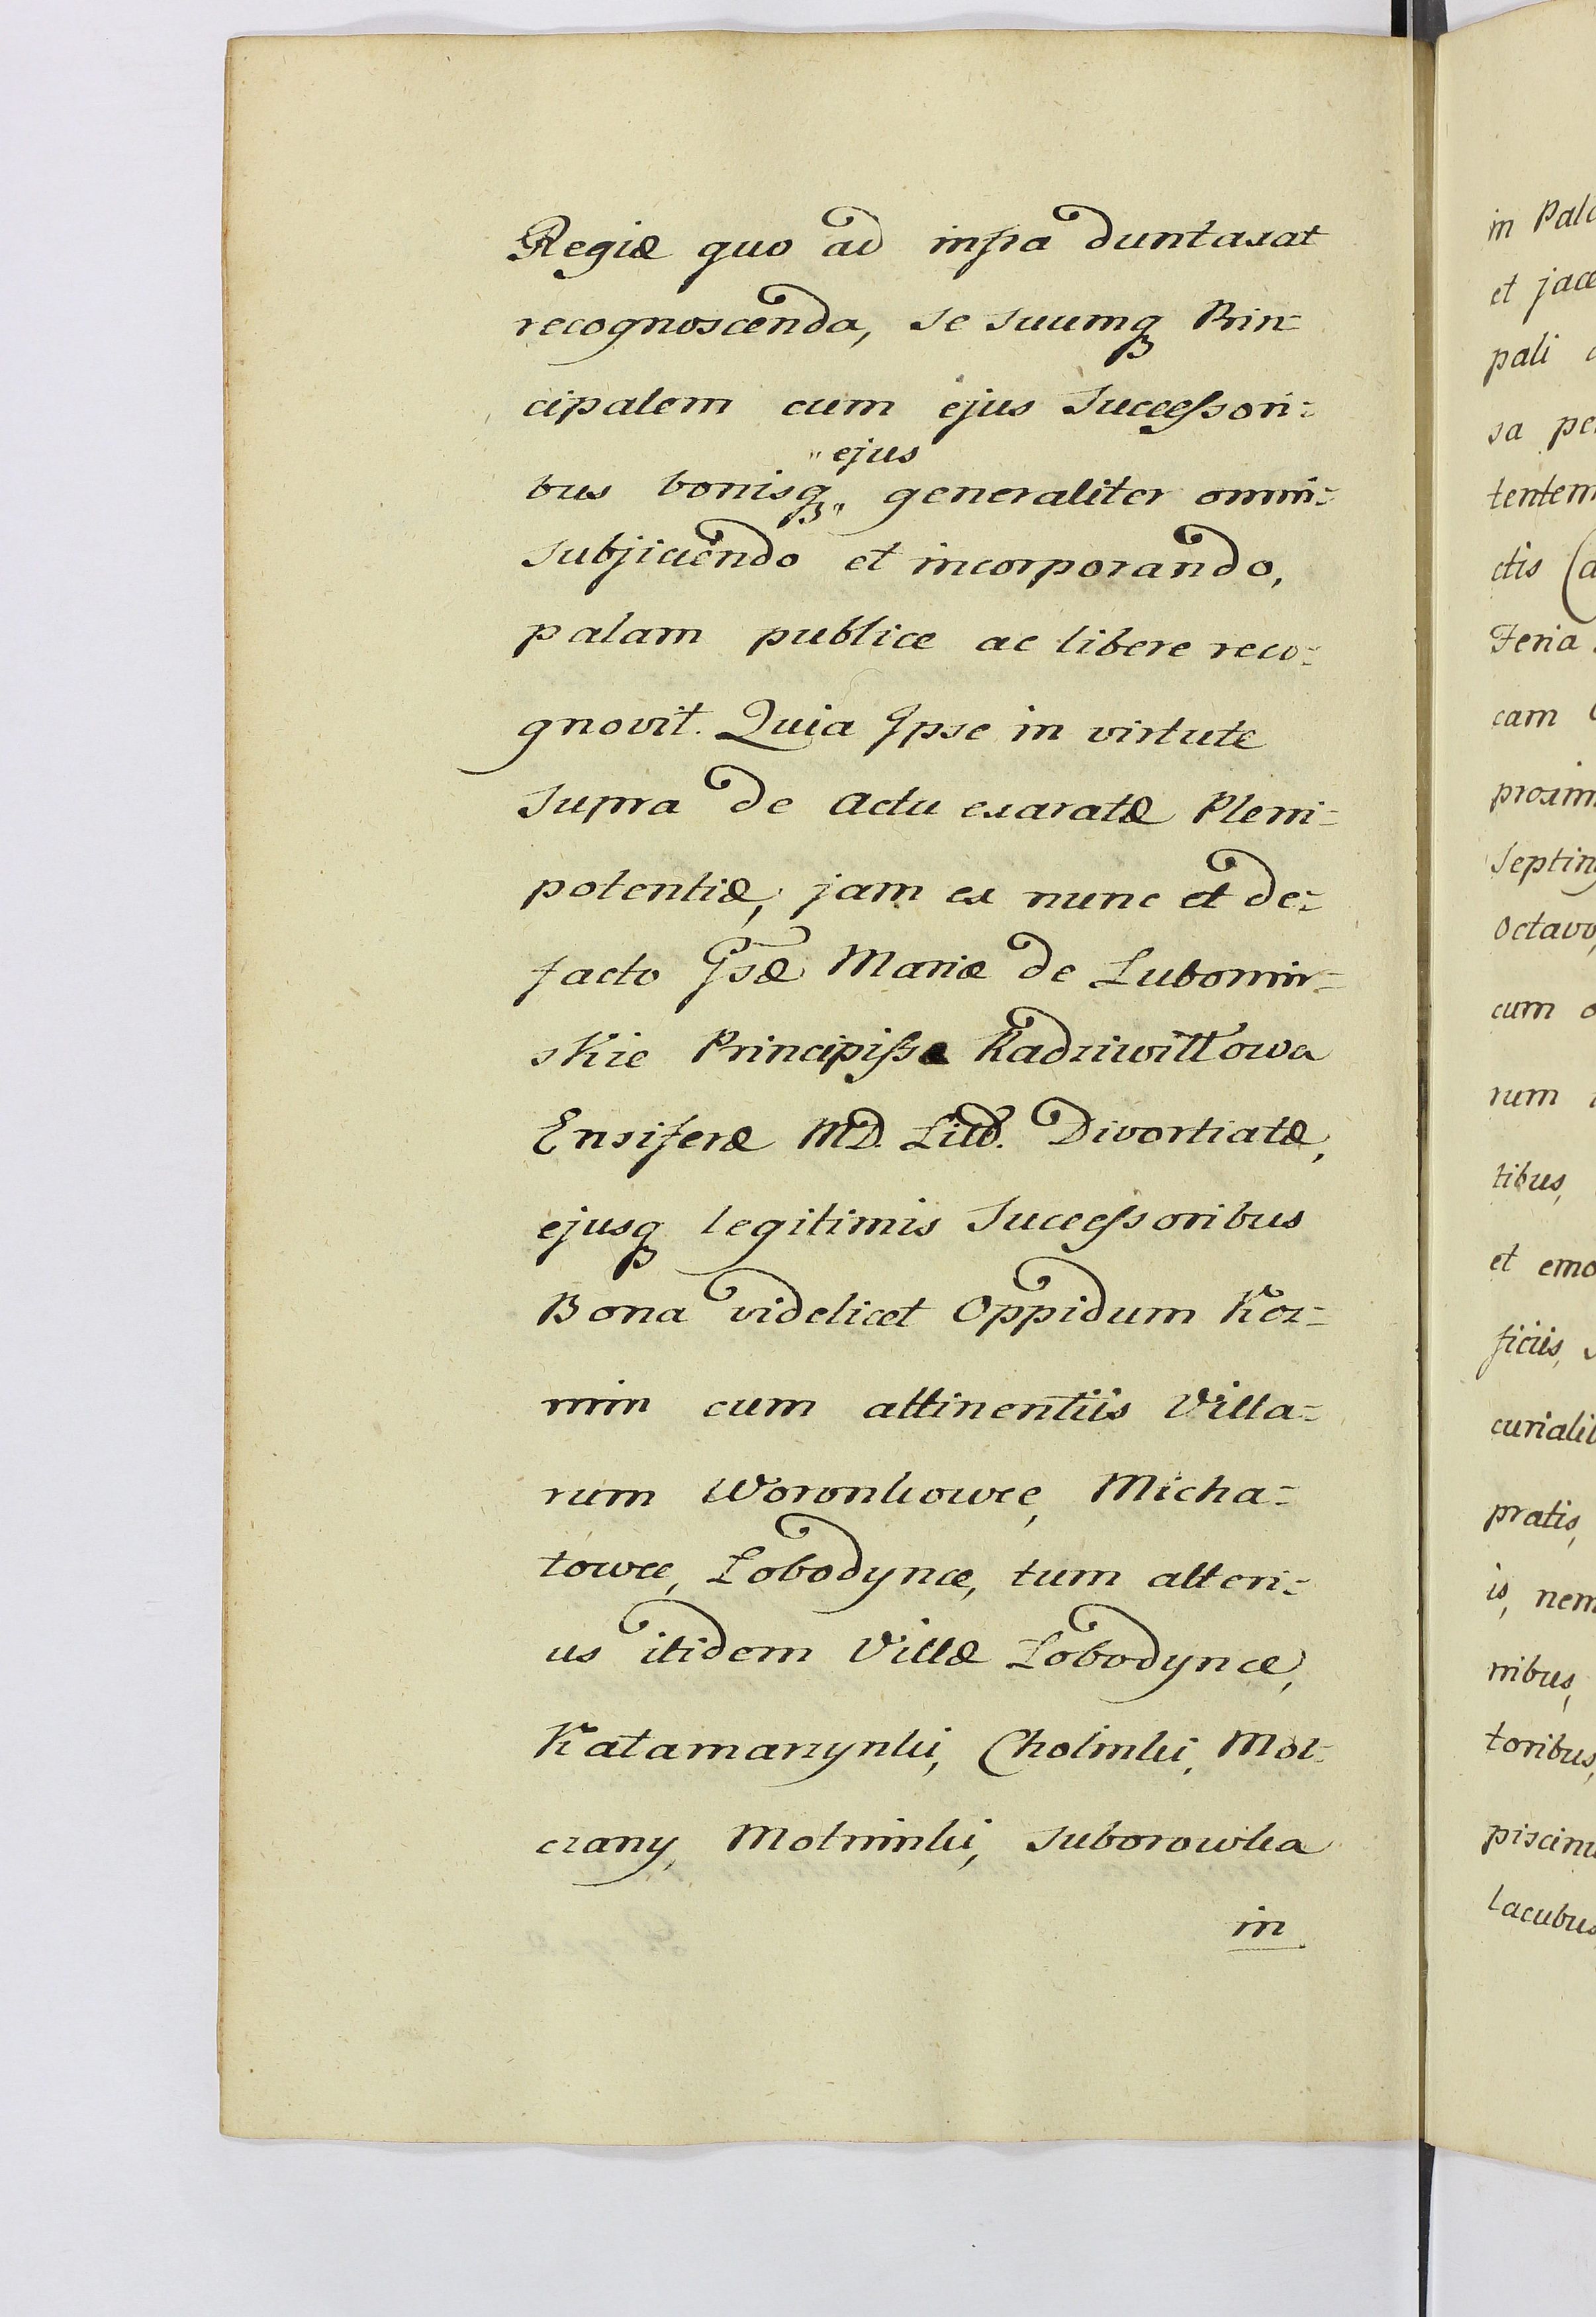 Regiæ quo ad infra duntaxat
recognoscenda, se suumq₃ Prin=
cipalem cum ejus Successori=
"ejus
bus bonisq₃" generaliter omni=
subjiciendo et incorporando,
palam publice ac libere reco=
gnovit. Quia Ipse in virtute
supra de actu exaratæ Pleni=
potentiæ, jam ex nunc et de=
facto Gsæ Mariæ de Lubomir=
skie Principissæ Radziwiłłowa
Ensiferæ MD. Litt. Divortiatæ,
ejusq₃ legitimis Successoribus
Bona videlicet Oppidum Koz=
min cum attinentiis Villa=
rum Woronkowce, Micha=
łowce, Łobodynce, tum alteri=
us itidem Villæ Łobodynce,
Kałamarzynki, Cholinki, Moł=
czany, Motninki, Suborowka
in
in Pala
et jace
pali
sa pe
tentem
ctis (a
Feria
cam
proxim
Septing
Octavo,
cum o
rum
tibus,
et emo
ficiis,
curialib
pratis,
is, nem
nibus,
toribus,
piscinis
lacubus